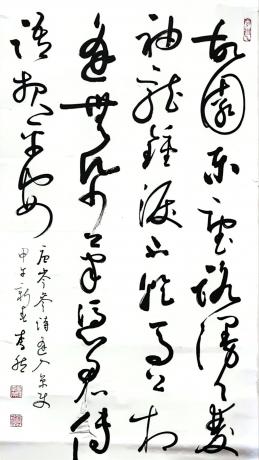 故園東望路漫々雙
袖龍鍾淚不乾馬上相
逢無紙筆憑君傳
語報平安
唐岑參詩逢入京使
甲午新春